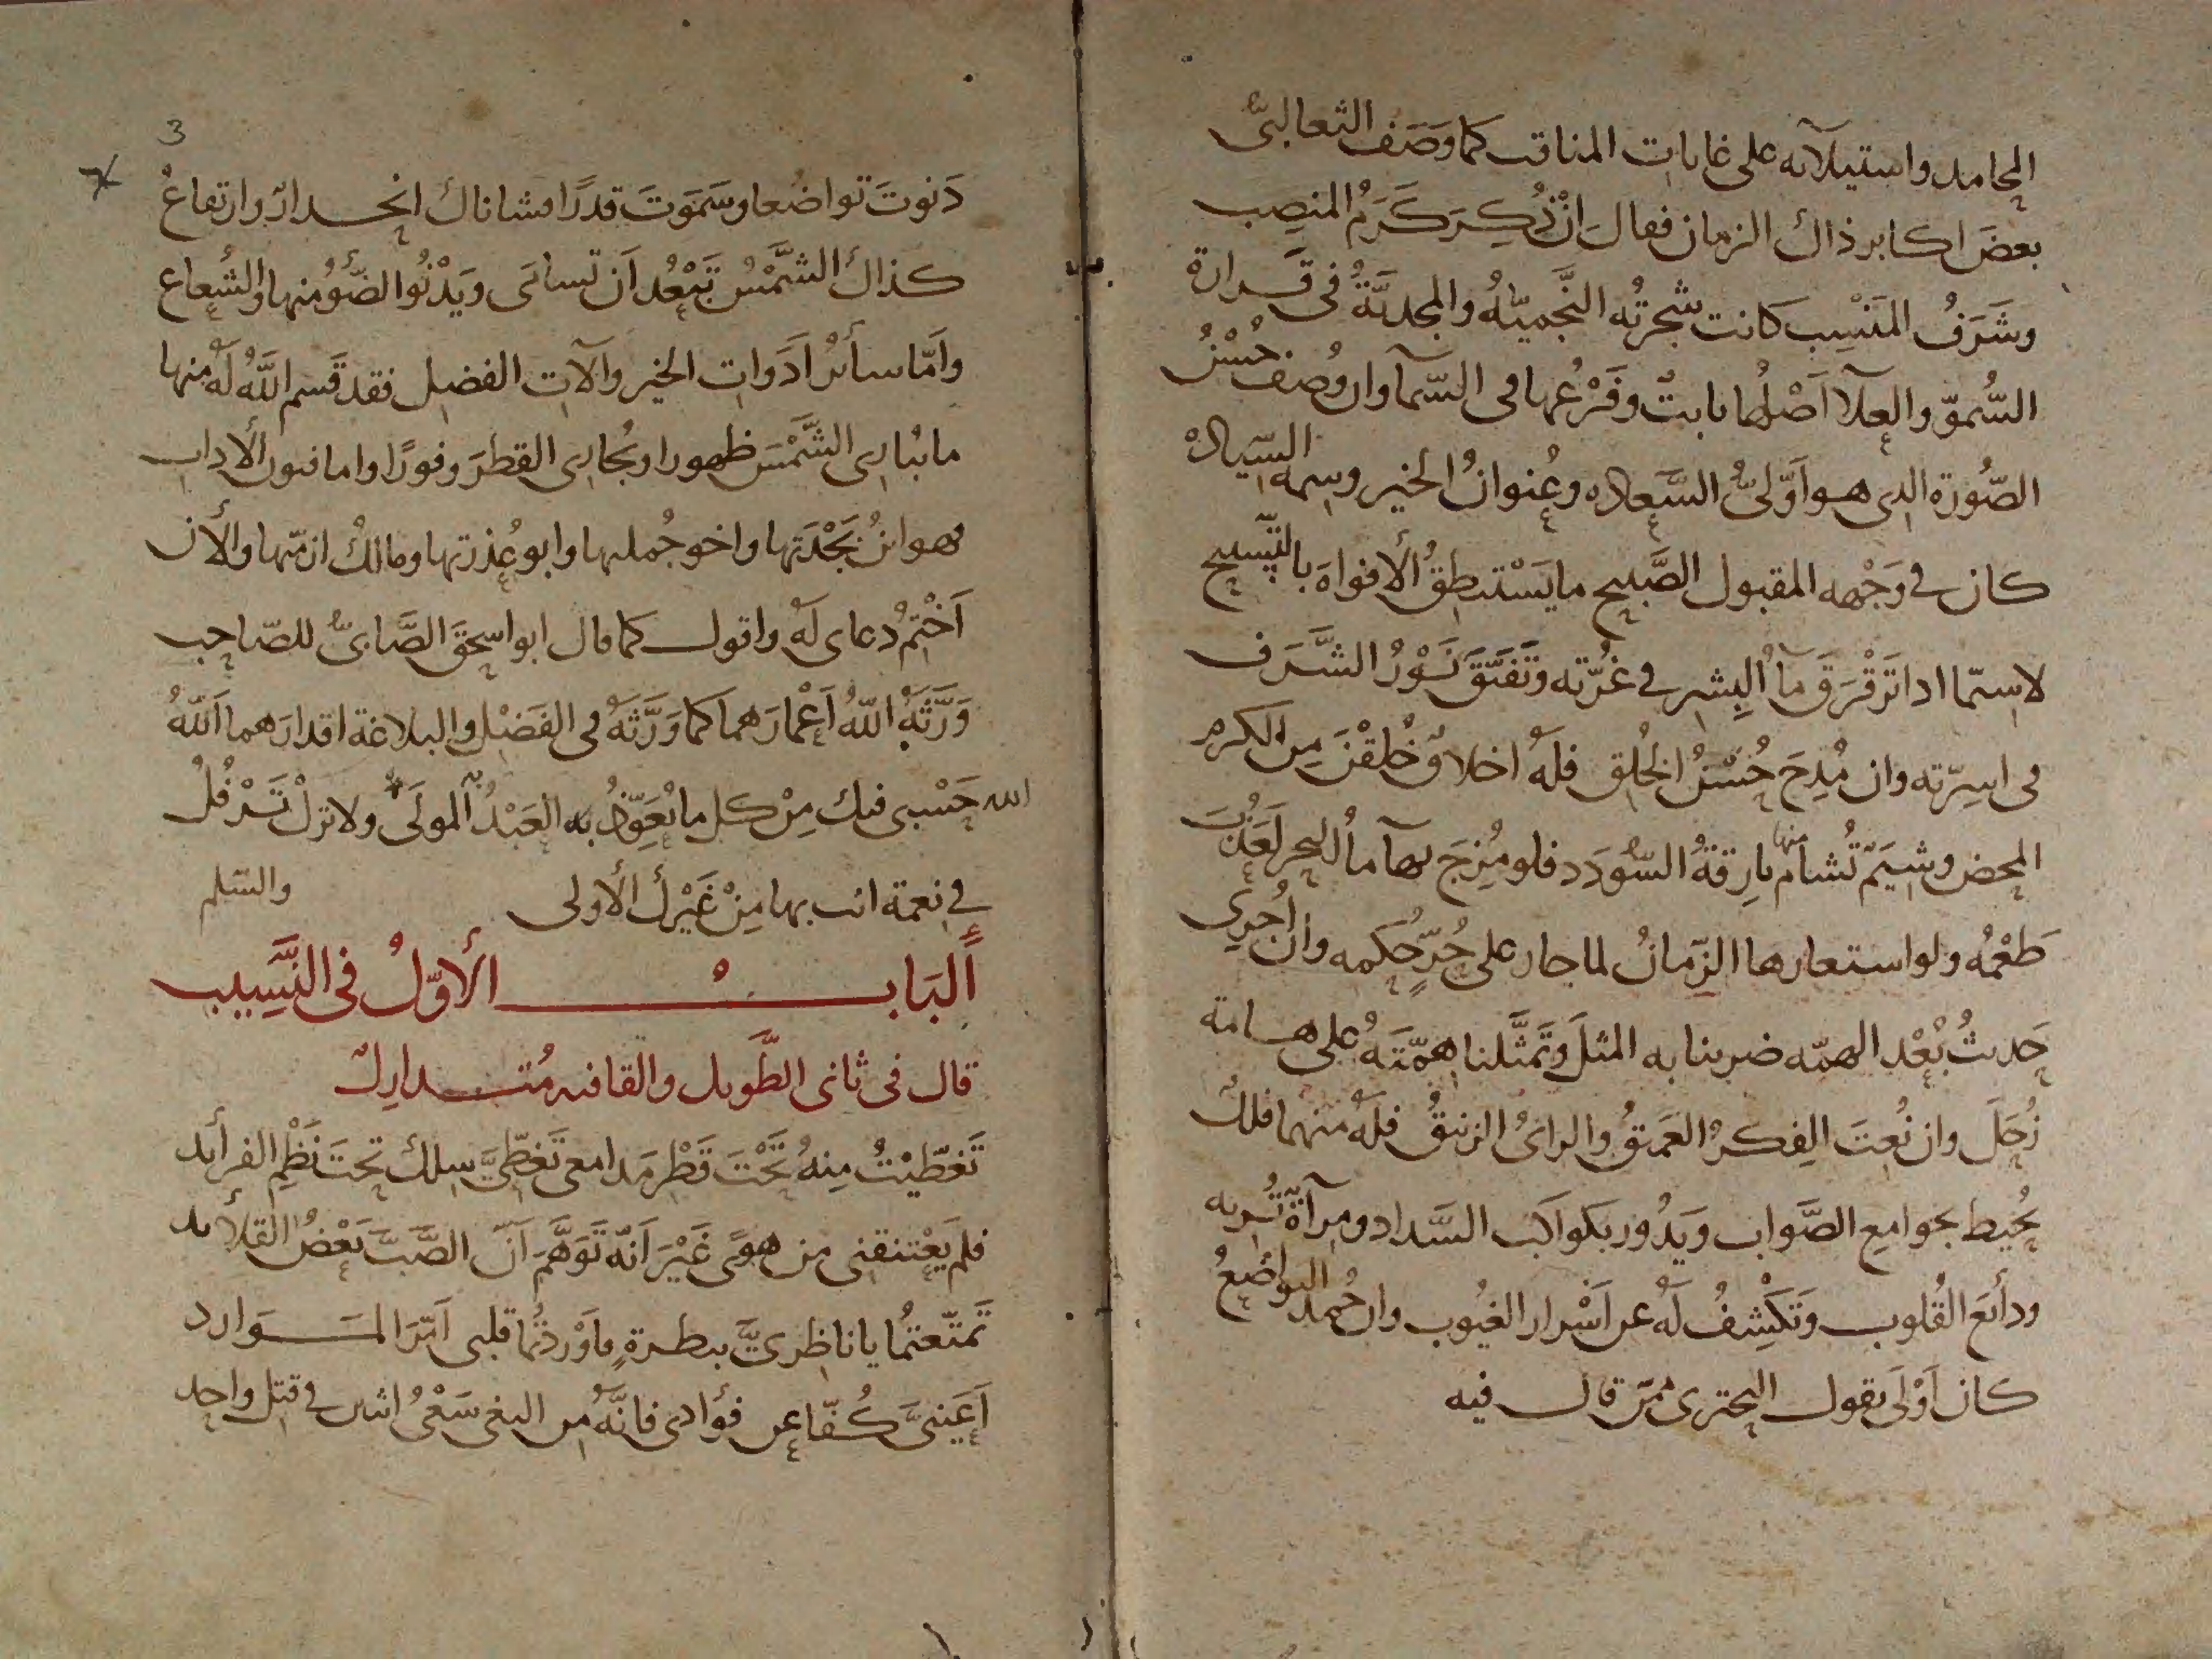 المحامد واستيلآئه على غايات المناقب كما وَصَفَ الثعالبىُّ
بعضَ اكابر ذاك الزمان فقال انْ ذُكِرَ كَرَمُ المنصِب
وشَرَفُ المَنْسِب كانت شجرتُه النَّجميّةُ والمجديَّةُ فى قَرارة
السُّموّ والعلآ اَصْلُها ثابتٌ وفَرْعُها فى السّمآ وان وُصِف حُسْنُ
الصُّورة الذى هو اَوّلىُّ السَّعاده وعُنوانُ الخير وسِمة السِّياده
كان فى وَجْهه المقبول الصَّبيح ما يَسْتنطِقُ الأفواهَ بالتّسبيح
لاسيّما اذا تَرَقْرَقَ مآُ البِشر فى غُرّته وتَفَتَّقَ نَوْرُ الشَّرَف
فى اسِرّته وان مُدِحَ حُسْنُ الخُلق فلَهُ اخلاقٌ خُلِقْنَ مِن الكرم
المحض وشِيَمٌ تُشامُ منها بارِقةُ السُّودَد فلو مُزِجَ بهآ مآُ البحر لَعَذُبَ
طَعْمُه ولو استعارها الزّمانُ لما جار على حُرّ حُكمه وان اُجرى
حَديثُ بُعْد الهمّه ضربنا به المثلَ وتَمثَّلنا هِمّتَهُ على هامة
زُحَلَ وان نُعِتَ الفِكرُ العَميقُ والراىُ الزنيقُ فلَهُ منهما فلكٌ
يُحيط بجوامع الصَّواب ويَدُور بكواكب السَّداد ومِرآةٌ تُريه
ودائعَ القُلوب وتَكْشِفُ لَهُ عن اَسْرار الغيُوب وان حُمد التواضعُ
كان اَوْلَى بقول البحترى ممّن قال فيه
3
دَنوتَ تواضعا وسَمَوتَ قدرًا فشاناك انحدارٌ وارتفاعُ
كذاك الشَّمْسُ تَبْعُد اَن تسامَى ويَدْنُو الضَّوُ منها والشُعاع
وامّا سائرُ اَدَوات الخير وآلات الفضل فقد قَسم اللّهُ لَهُ منها
ما يُبارى الشَّمْسَ ظهورا ويُجارى القطرَ وفورًا واما فنون الأداب
فهو ابنُ بَجْدَتها واخو جُملتها وابو عُذرتها ومالكُ ازمّتها والأن
اَخْتِمُ دعاى لَهُ واقول كما قال ابو اسحقَ الصَّابىُّ للصّاحب
وَرَّثَهُ اللّهُ اَعْمارَهما كما وَرَّثَهُ فى الفَضْل والبلاغة اقدارَهما اَللّهُ
الله حَسْبى فيك مِنْ كل ما يُعَوَّذُ به العَبْدُ المولَى ولا تزلْ تَرْفُلُ
فى نعمة انت بها مِنْ غَيْرك الأولى والسّلم
اَلبَابُ الأوّلُ فى النَّسِيب
قال فى ثانى الطَّويل والقافيه مُتدارِك
تَغطّيْتُ مِنهُ تَحْتَ قَطْر مَدامعى تَغطِّىَ سِلك تحتَ نَظْم الفرائد
فلم يَعْتنقنى من هوًى غَيْرَ اَنّه تَوَهَّمَ اَنّ الصَّبَّ بَعْضُ القلائد
تَمتّعتُما يا ناظِرىَّ بنظرةٍ فاَوْردتُما قلبى اَمَرّ المَوارد
اَعَينىَّ كُفّا عن فؤادى فانَّهُ من البغى سَعْىُ اثنين فى قتل واحد